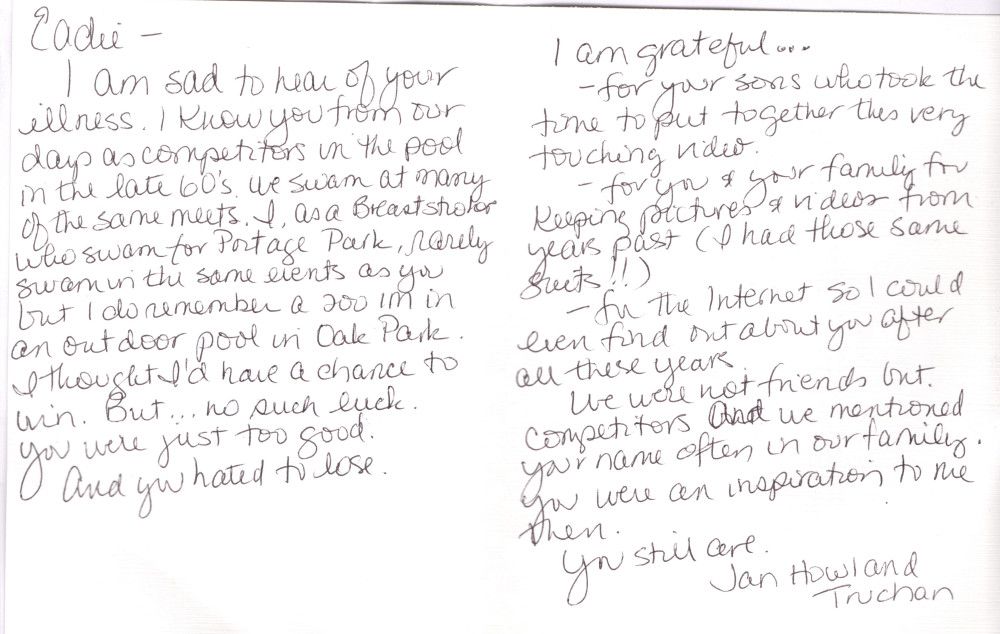 Eadie -
I am sad to hear of your
illness. I know you from our
days as competitors in the pool
in the late 60's. We swam at many
of the same meets. I, as a Breaststroker
who swam for Portage Park, rarely
swam in the same events as you
but I do remember a 200 IM in
an outdoor pool in Oak Park.
I thought I'd have a chance to
win. But... no such luck.
You were just too good.
And you hated to lose.
I am grateful...
- for your sons who took the
time to put together this very
touching video.
- for you & your family for
keeping pictures & videos from
years past (I had those same
suits!!)
- for the Internet so I could
even find out about you after
all these years.
We were not friends but
competitors And we mentioned
your name often in our family.
You were an inspiration to me
then.
You still are.
Jan Howland
Truchan